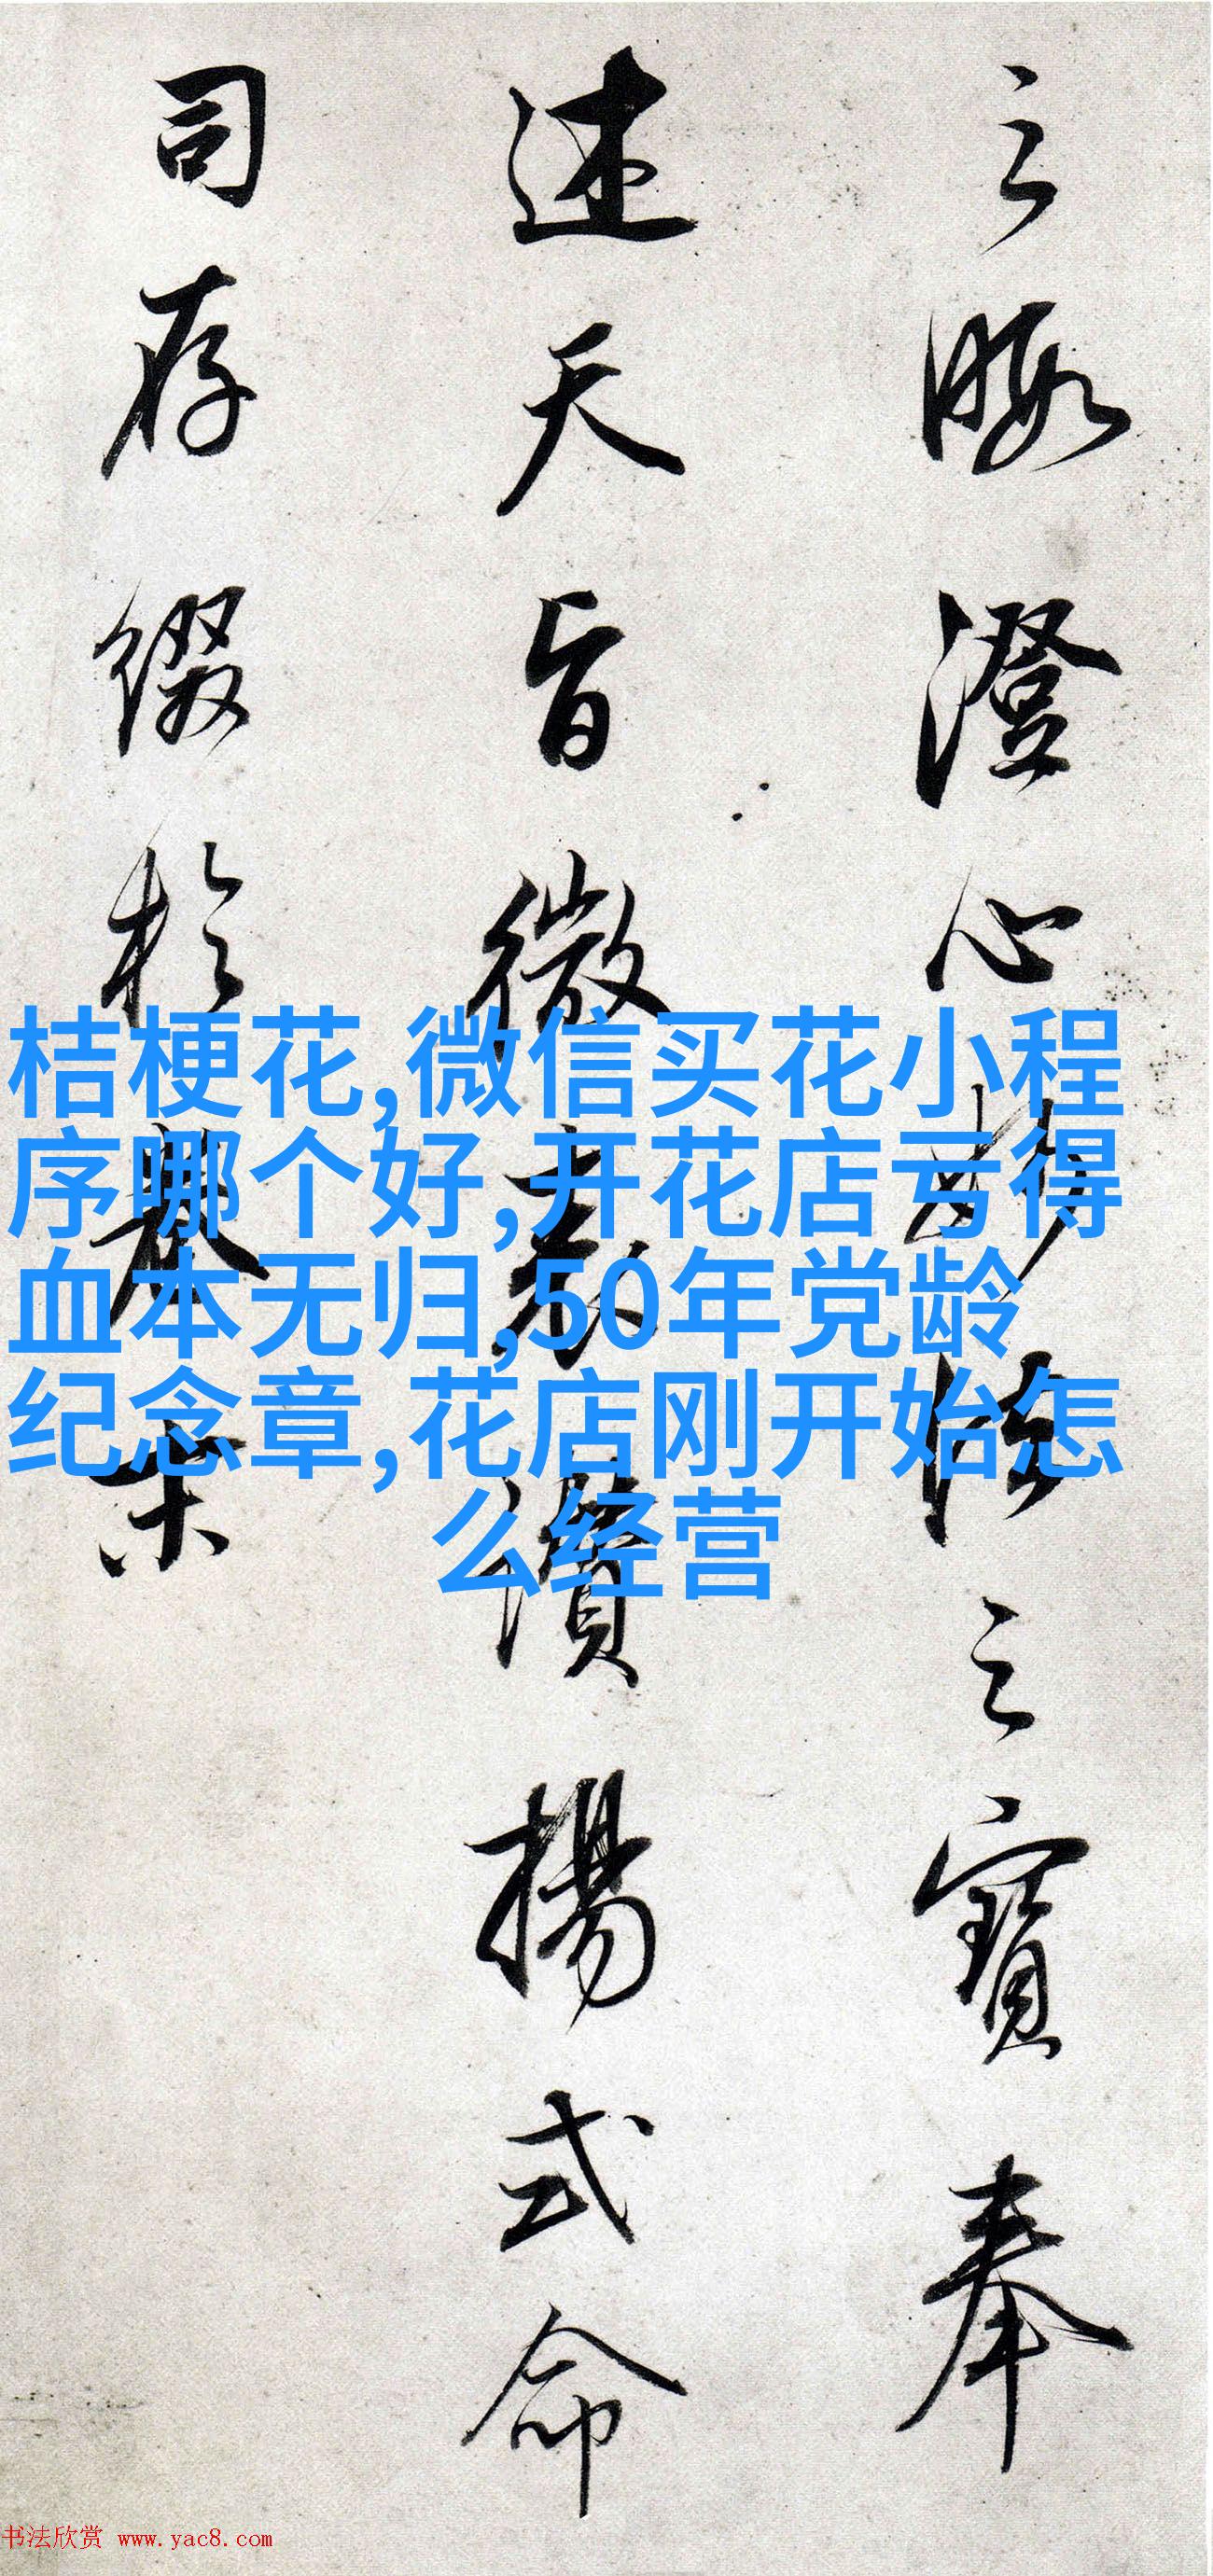 之暇澄心妙法之寶奉
述天旨微表讚揚式命
司存綴於卷末
桔梗花,微信买花小程
序哪个好,开花店亏得
血本无归,50年党龄
纪念章,花店刚开始怎
么经营
书法欣赏 www.yac8.com